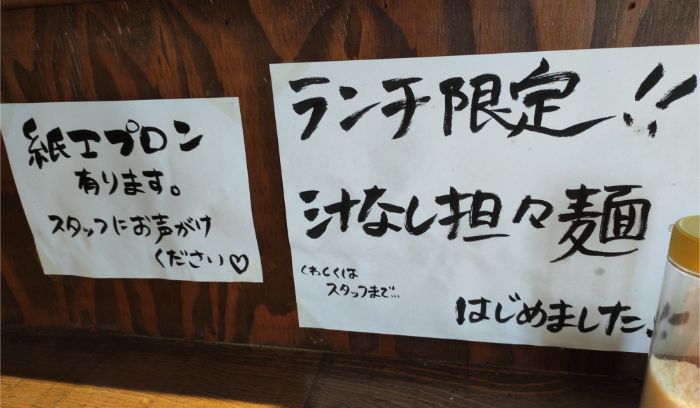 紙エプロン
有ります。
スタッフにお声がけ
ください♡
ランチ限定!!
汁なし担々麺
くわしくは
スタッフまで...
はじめました。